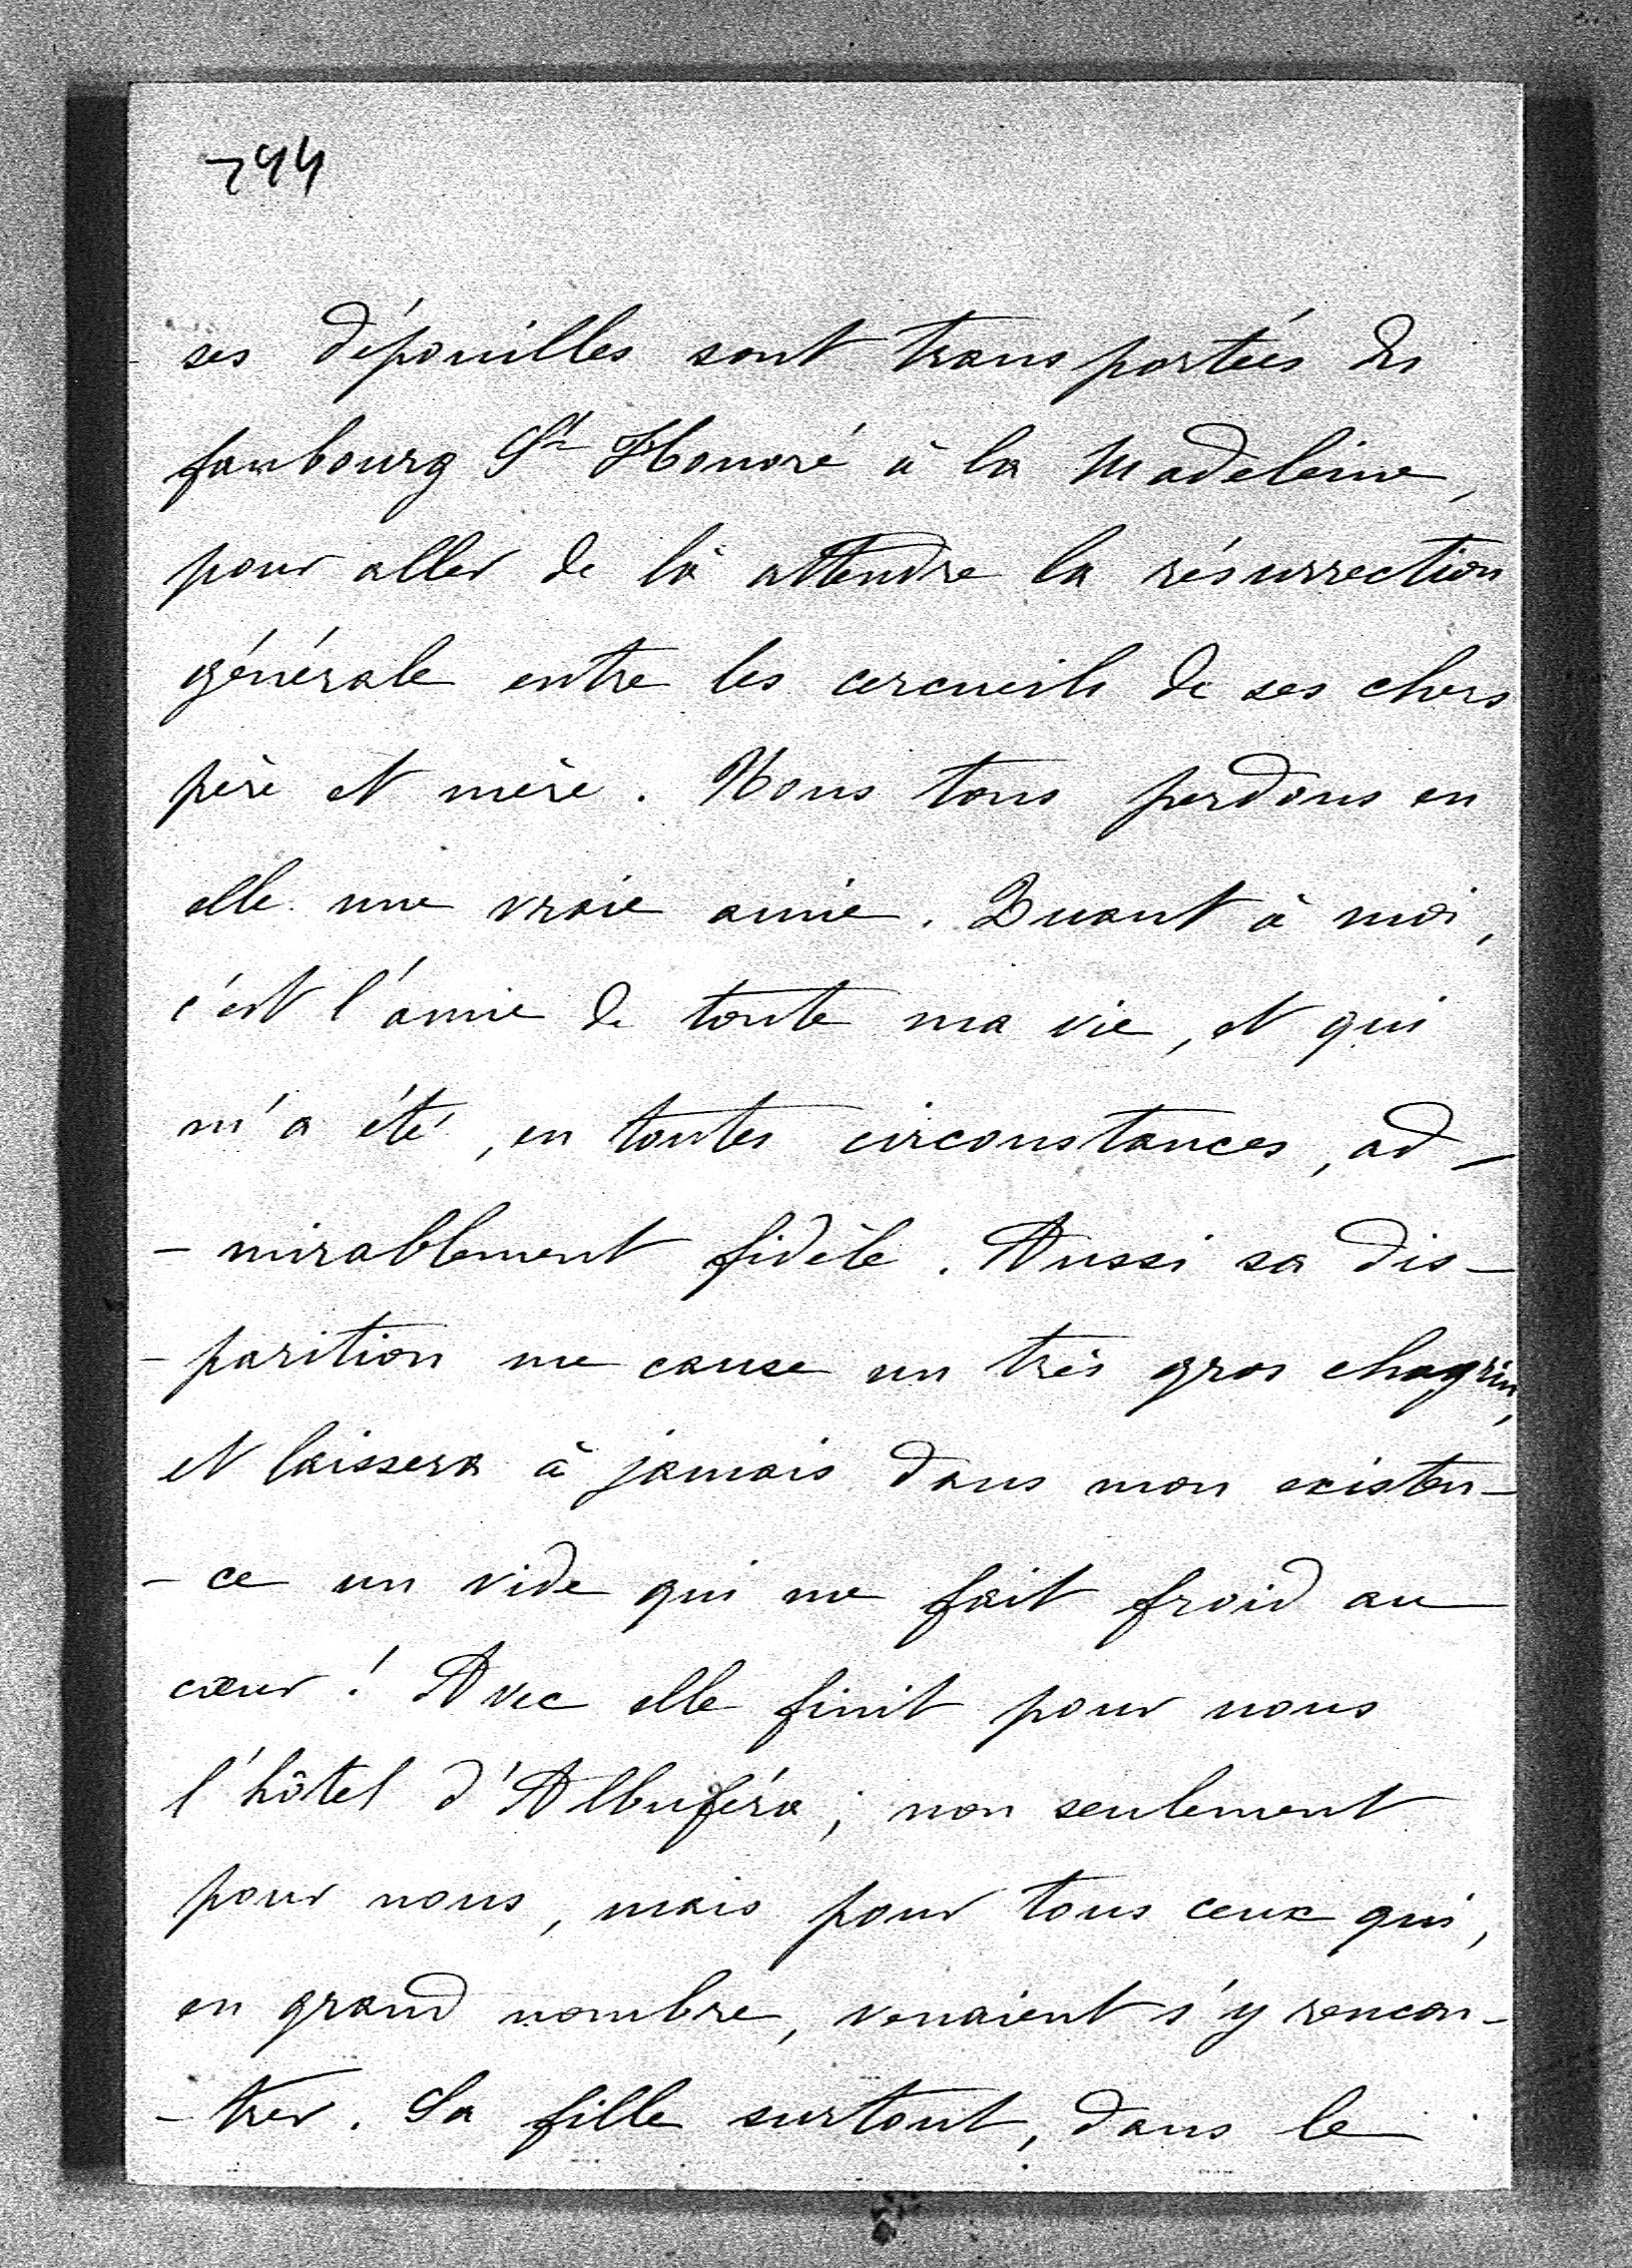 744
ses dépouilles sont transportées du
faubourg St Honoré à la Madeleine,
pour aller de là attendre la résurrection
générale entre les cercueils de ses chers
père et mère. Nous tous perdons en
elle une vraie amie. Quant à moi,
c'est l'amie de toute ma vie, et qui
m'a été, en toutes circonstances, ad-
-mirablement fidèle. Aussi sa dis-
-parition me cause un très gros chagrin,
et laissera à jamais dans mon existen-
-ce un vide qui me fait froid au
cœur! Avec elle finit pour nous
l'hôtel d'Albuféra; non seulement
pour nous, mais pour tous ceux qui,
en grand nombre, venaient s'y rencon-
-trer. Sa fille surtout, dans le